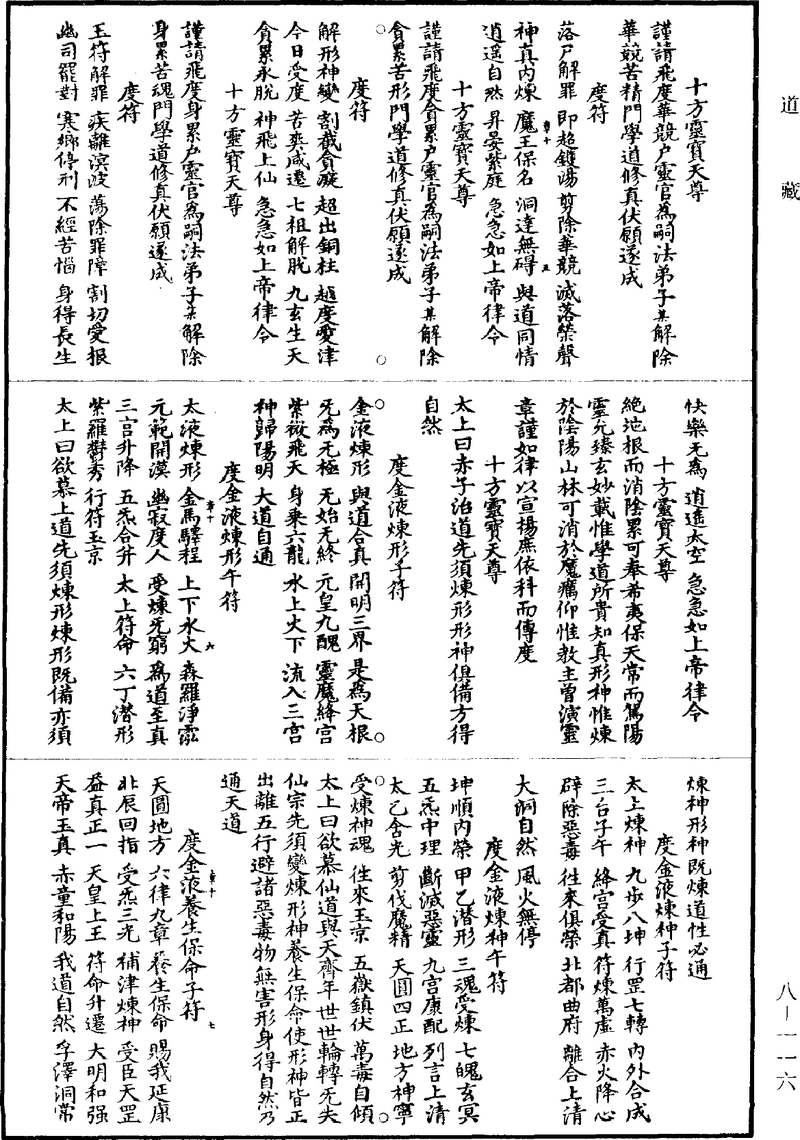 道藏
十方靈寶天尊
謹請飛度華競户靈官為嗣法弟子某解除
華競苦精門學道修真伏願遂成
度符
落尸解罪 即超鑊湯 剪除華競 滅落榮聲
神真內煉 魔王保名 洞達無碍 與道同情
逍遥自然 昇晏紫庭 急急如上帝律令
十方靈寶天尊
謹請飛度貪累户靈官為嗣法弟子某解除
貪累苦形門學道修真伏願遂成
度符
解形神變 割截貪癡 超出銅柱 越度愛津
今日受度 苦爽咸遣 七祖解脱 九玄生天
貪累永脱 神飛上仙 急急如上帝律令
十方靈寶天尊
謹請飛度身累户靈官為嗣法弟子某解除
身累苦魂門學道修真伏願遂成
度符
玉符解罪 疾離溟波 蕩除罪障 割切愛根
幽司罷對 寒鄉停刑 不經苦惱 身得長生
快樂无為 逍遥太空 急急如上帝律令
十方靈寶天尊
絶地根而消陰累可奉希夷保天常而篤陽
靈允臻玄妙載惟學道所貴知真形神惟煉
於陰陽山林可消於魔癘仰惟教主曾演靈
章謹如律以宣揚庶依科而傳度
十方靈寶天尊
太上曰赤子治道先須煉形形神俱備方得
自然
度金液煉形子符
金液煉形 與道合真 開明三界 是為天根
炁為无極 无始无終 元皇九醜 靈魔絳宫
紫微飛天 身乗六龍 水上火下 流入三宫
神歸陽明 大道自通
度金液煉形午符
太液煉形 金馬驛程 上下水火 森羅淨
元範開漠 幽寂度人 受煉无窮 為道至真
三宫升降 五炁合并 太上符命 六丁潜形
紫羅欝秀 行符玉京
太上曰欲慕上道先須煉形煉形既備亦須
煉神形神既煉道性必通
度金液煉神子符
太上煉神 九步八坤 行罡七轉 内外合成
三台子午 絳宫受真 符煉萬虚 赤火降心
辟除惡毒 往來俱榮 北都曲府 離合上清
大洞自然 風火無停
度金液煉神午符
坤順内榮 甲乙潜形 三魂受煉 七魄玄冥
五炁中理 斷滅惡靈 九宫康配 列言上清
太乙含光 剪伐魔精 天圓四正 地方神寧
受煉神魂 往來玉京 五嶽鎮伏 萬毒自傾
太上曰欲慕仙道與天齊年世世輪轉无失
仙宗先須變煉形神養生保命使形神皆正
出離五行避諸惡毒物無害形身得自然乃
通天道
度金液養生保命子符
天圓地方 六律九章 養生保命 賜我延康
北辰回指 受炁三光 補津煉神 受臣天罡
益真正一 天皇上王 符命升遷 大明和强
天帝玉真 赤童和陽 我道自然 孚澤洞常
八一一一六